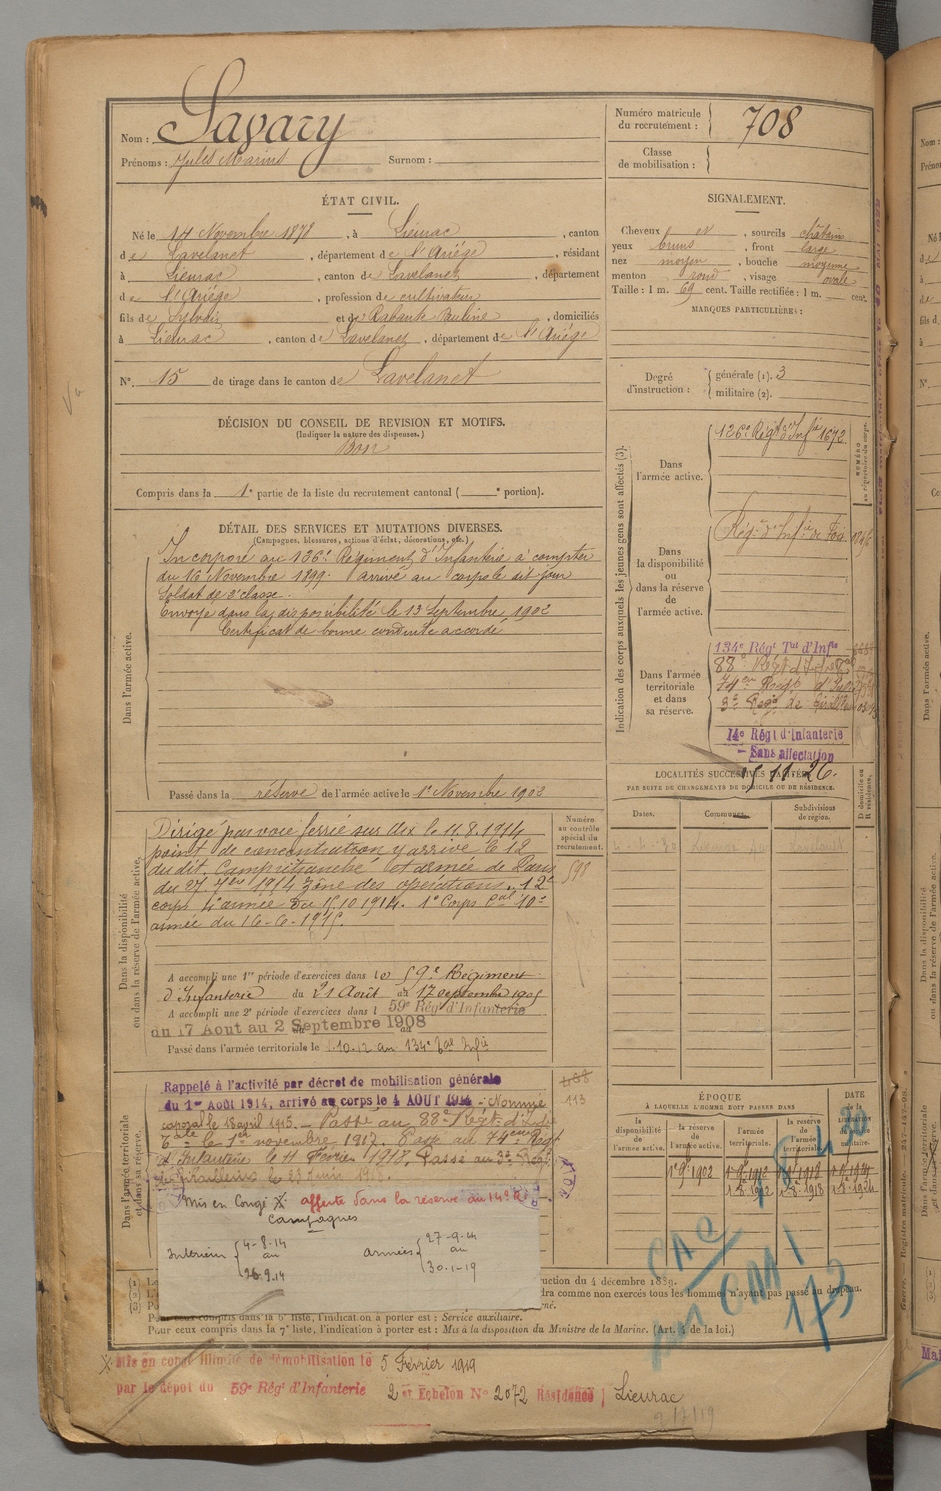 Nom : Savary
Prénoms : Jules Marius Surnom :
Numéro matricule du recrutement : 708
Classe de mobilisation :
ÉTAT CIVIL.
Né le 14 Novembre 1878, à Lieurac, canton
de Lavelanet, département de l'Ariége, résidant
à Lieurac, canton de Lavelanet, département
de l'Ariége, profession de cultivateur
fils de Sylvain et de Pauline, domiciliés
à Lieurac, canton de Lavelanet, département de l'Ariége
N° 15 de tirage dans le canton de Lavelanet
SIGNALEMENT.
Cheveux et, sourcils châtains
yeux bruns, front large
nez moyen, bouche moyenne
menton rond, visage ovale
Taille : 1 m. 69 cent. Taille rectifiée : 1 m. cent.
MARQUES PARTICULIÈRES :
Degré d'instruction : générale (1). 3
militaire (2).
DÉCISION DU CONSEIL DE REVISION ET MOTIFS.
(Indiquer la nature des dispenses.)
Bon
Compris dans la 1e partie de la liste du recrutement cantonal ( e portion).
DÉTAIL DES SERVICES ET MUTATIONS DIVERSES.
(Campagnes, blessures, actions d'éclat, décorations, etc.)
Dans l'armée active.
Incorporé au 126e Régiment d'Infanterie à compter
du 16 Novembre 1899. arrivé au corps le dit jour
Soldat de 2e classe.
Envoyé dans la disponibilité le 13 Septembre 1902
Certificat de bonne conduite accordé
Passé dans la réserve de l'armée active le 1e Novembre 1902
Indication des corps auxquels les jeunes gens sont affectés (3).
NUMÉRO au répertoire du corps.
Dans l'armée active.
126e Régt d'Infie 1672
Dans la disponibilité ou dans la réserve de l'armée active.
Régt d'Infie de Foix
Dans l'armée territoriale et dans sa réserve.
134e Régt Tal d'Infie
88e Régt d'Inf
74eme Regt d'Inf
3e Regt de Tirailleurs
14e Régt d'Infanterie
Sans affectation
15.11.26.
LOCALITÉS SUCCESSIVES HABITÉES
PAR SUITE DE CHANGEMENTS DE DOMICILE OU DE RÉSIDENCE.
D domicile ou R résidence.
Dates. Communes. Subdivisions de région.
Dans la disponibilité ou dans la réserve de l'armée active.
Numéro au contrôle spécial du recrutement.
598
Dirigé par voie ferrée sur dix le 11.8.1914
point de concentration y arrive le 12
du dit. Camp retranché et armée de Paris
du 27 7bre 1914 zône des opérations. 12e
corps 4e armée du 15 10 1914. 1e Corps Cal 10e
armée du 16-6-1915.
A accompli une 1re période d'exercices dans le 59e Régiment
d'Infanterie du 21 Août au 17 septembre 1905
A accompli une 2e période d'exercices dans l 59e Rég d'Infanterie
du 17 Aout au 2 Septembre 1908
Passé dans l'armée territoriale le 1.10.12 au 134e Tal Infie
Dans l'armée territoriale et dans sa réserve.
Rappelé à l'activité par décret de mobilisation générale
du 1er Août 1914, arrivé au corps le 4 AOUT 1914 - Nommé
caporal le 18 avril 1915. - Passé au 88e Régt d'Inf
Tale le 1er novembre 1917. Passé au 74eme Regt
d'Infanterie le 11 Février 1918. Passé au 3e Regt
de Tirailleurs le 23 juin 1918.
113
Mis en Congé X. affecté dans la réserve au 14e R.I
Campagnes
Intérieur 4-8-14 au 26.9.14
armées 27-9-14 au 30-1-19
ÉPOQUE
À LAQUELLE L'HOMME DOIT PASSER DANS
la disponibilité de l'armée active. la réserve de l'armée active. l'armée territoriale. la réserve de l'armée territoriale.
DATE de la LIBÉRATION du service militaire.
1e 9e 1902
CAC
au CM I
173
ruction du 4 décembre 1889.
dra comme non exercés tous les hommes n'ayant pas passé au drapeau.
Pour ceux compris dans la 6e liste, l'indication à porter est : Service auxiliaire.
Pour ceux compris dans la 7e liste, l'indication à porter est : Mis à la disposition du Ministre de la Marine. (Art. 4 de la loi.)
X Mis en congé illimité de démobilisation le 5 Février 1919
par le dépôt du 59e Régt d'Infanterie 2er Échelon No 2072 Résidence Lieurac